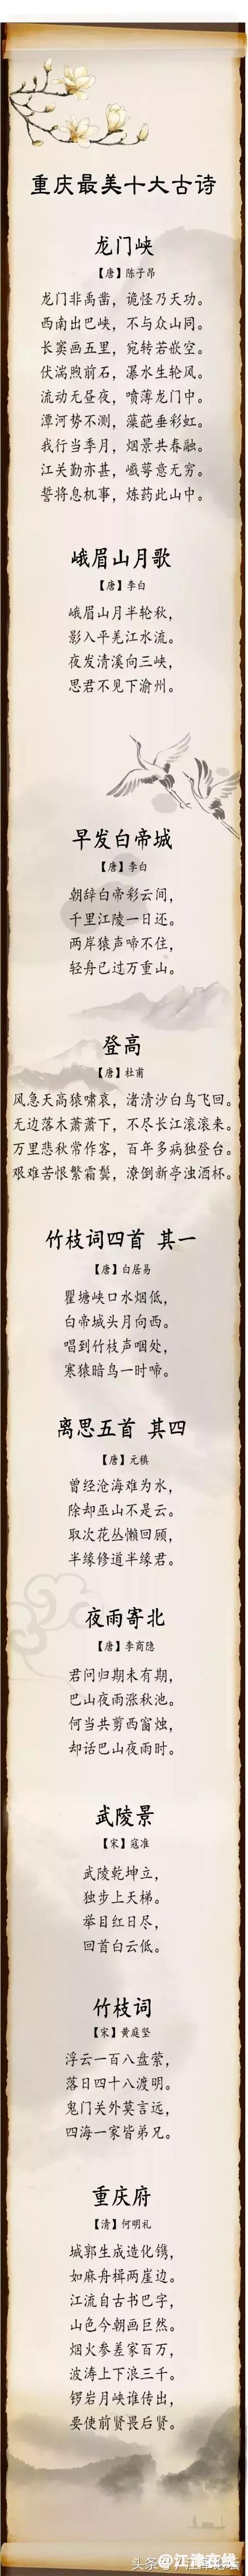 重庆最美十大古诗
龙门峡
【唐】陈子昂
龙门非禹凿，诡怪乃天功。
西南出巴峡，不与众山同。
长窦画五里，宛转若嵌空。
伏湍煦前石，瀑水生轮风。
流动无昼夜，喷薄龙门中。
潭河势不测，藻葩垂彩虹。
我行当季月，烟景共春融。
江关勤亦甚，巘崿意无穷。
誓将息机事，炼药此山中。
峨眉山月歌
【唐】李白
峨眉山月半轮秋，
影入平羌江水流。
夜发清溪向三峡，
思君不见下渝州。
早发白帝城
【唐】李白
朝辞白帝彩云间，
千里江陵一日还。
两岸猿声啼不住，
轻舟已过万重山。
登高
【唐】杜甫
风急天高猿啸哀，渚清沙白鸟飞回。
无边落木萧萧下，不尽长江滚滚来。
万里悲秋常作客，百年多病独登台。
艰难苦恨繁霜鬓，潦倒新亭浊酒杯。
竹枝词四首 其一
【唐】白居易
瞿塘峡口水烟低，
白帝城头月向西。
唱到竹枝声咽处，
寒猿暗鸟一时啼。
离思五首 其四
【唐】元稹
曾经沧海难为水，
除却巫山不是云。
取次花丛懒回顾，
半缘修道半缘君。
夜雨寄北
【唐】李商隐
君问归期未有期，
巴山夜雨涨秋池。
何当共剪西窗烛，
却话巴山夜雨时。
武陵景
【宋】寇准
武陵乾坤立，
独步上天梯。
举目红日尽，
回首白云低。
竹枝词
【宋】黄庭坚
浮云一百八盘萦，
落日四十八渡明。
鬼门关外莫言远，
四海一家皆弟兄。
重庆府
【清】何明礼
城郭生成造化镌，
如麻舟楫两崖边。
江流自古书巴字，
山色今朝画巨然。
烟火参差家百万，
波涛上下浪三千。
锣岩月峡谁传出，
要使前贤畏后贤。
@江津在线